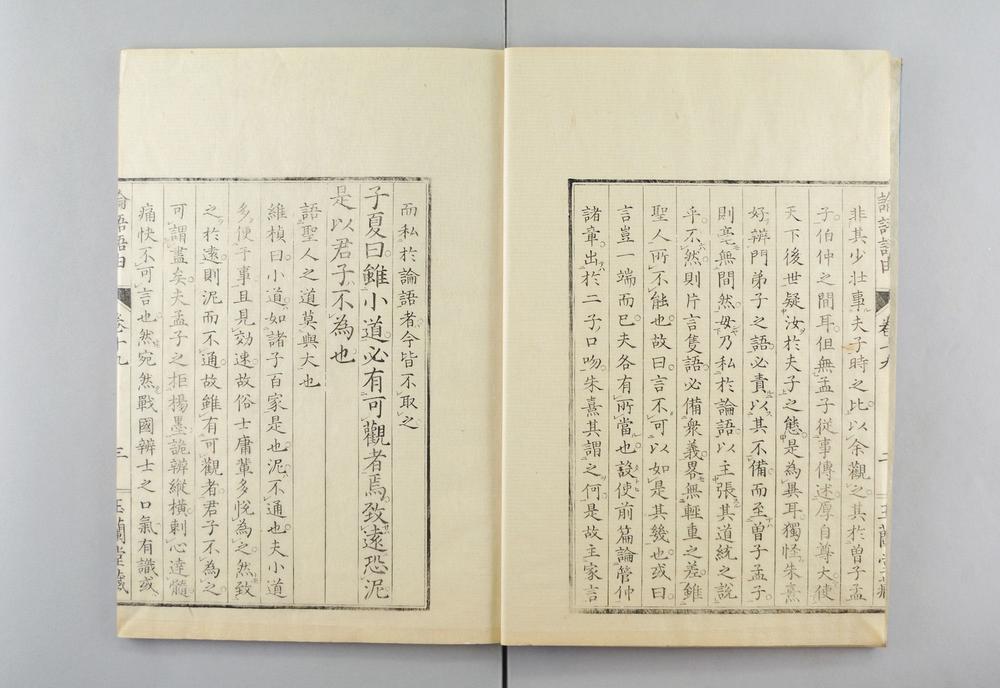 論語語由 卷十九 二 玉蘭堂藏
非其少壯事夫子時之比以余觀之其於曾子孟
子伯仲之間耳但無孟子從事傳述厚自尊大使
天下後世疑汝於夫子之態是為異耳獨怪朱熹
好辨門弟子之語必責以其不備而至曾子孟子
則毫無間然毋乃私於論語以主張其道統之說
乎不然則片言隻語必備衆義畧無輕重之差雖
聖人所不能也故曰言不可以如是其幾也或曰
言豈一端而已夫各有所當也設使前篇論管仲
諸章出於二子口吻朱熹其謂之何是故主家言
而私於論語者今皆不取之
子夏曰雖小道必有可觀者焉致遠恐泥
是以君子不為也
語聖人之道莫與大也
維楨曰小道如諸子百家是也泥不通也夫小道
多便于事且見効速故俗士庸輩多悅為之然致
之於遠則泥而不通故雖有可觀者君子不為之
可謂盡矣夫孟子之拒楊墨詭辨縱橫刺心達髓
痛快不可言也然宛然戰國辨士之口氣有識或
論語語由 卷十九 三 玉蘭堂藏